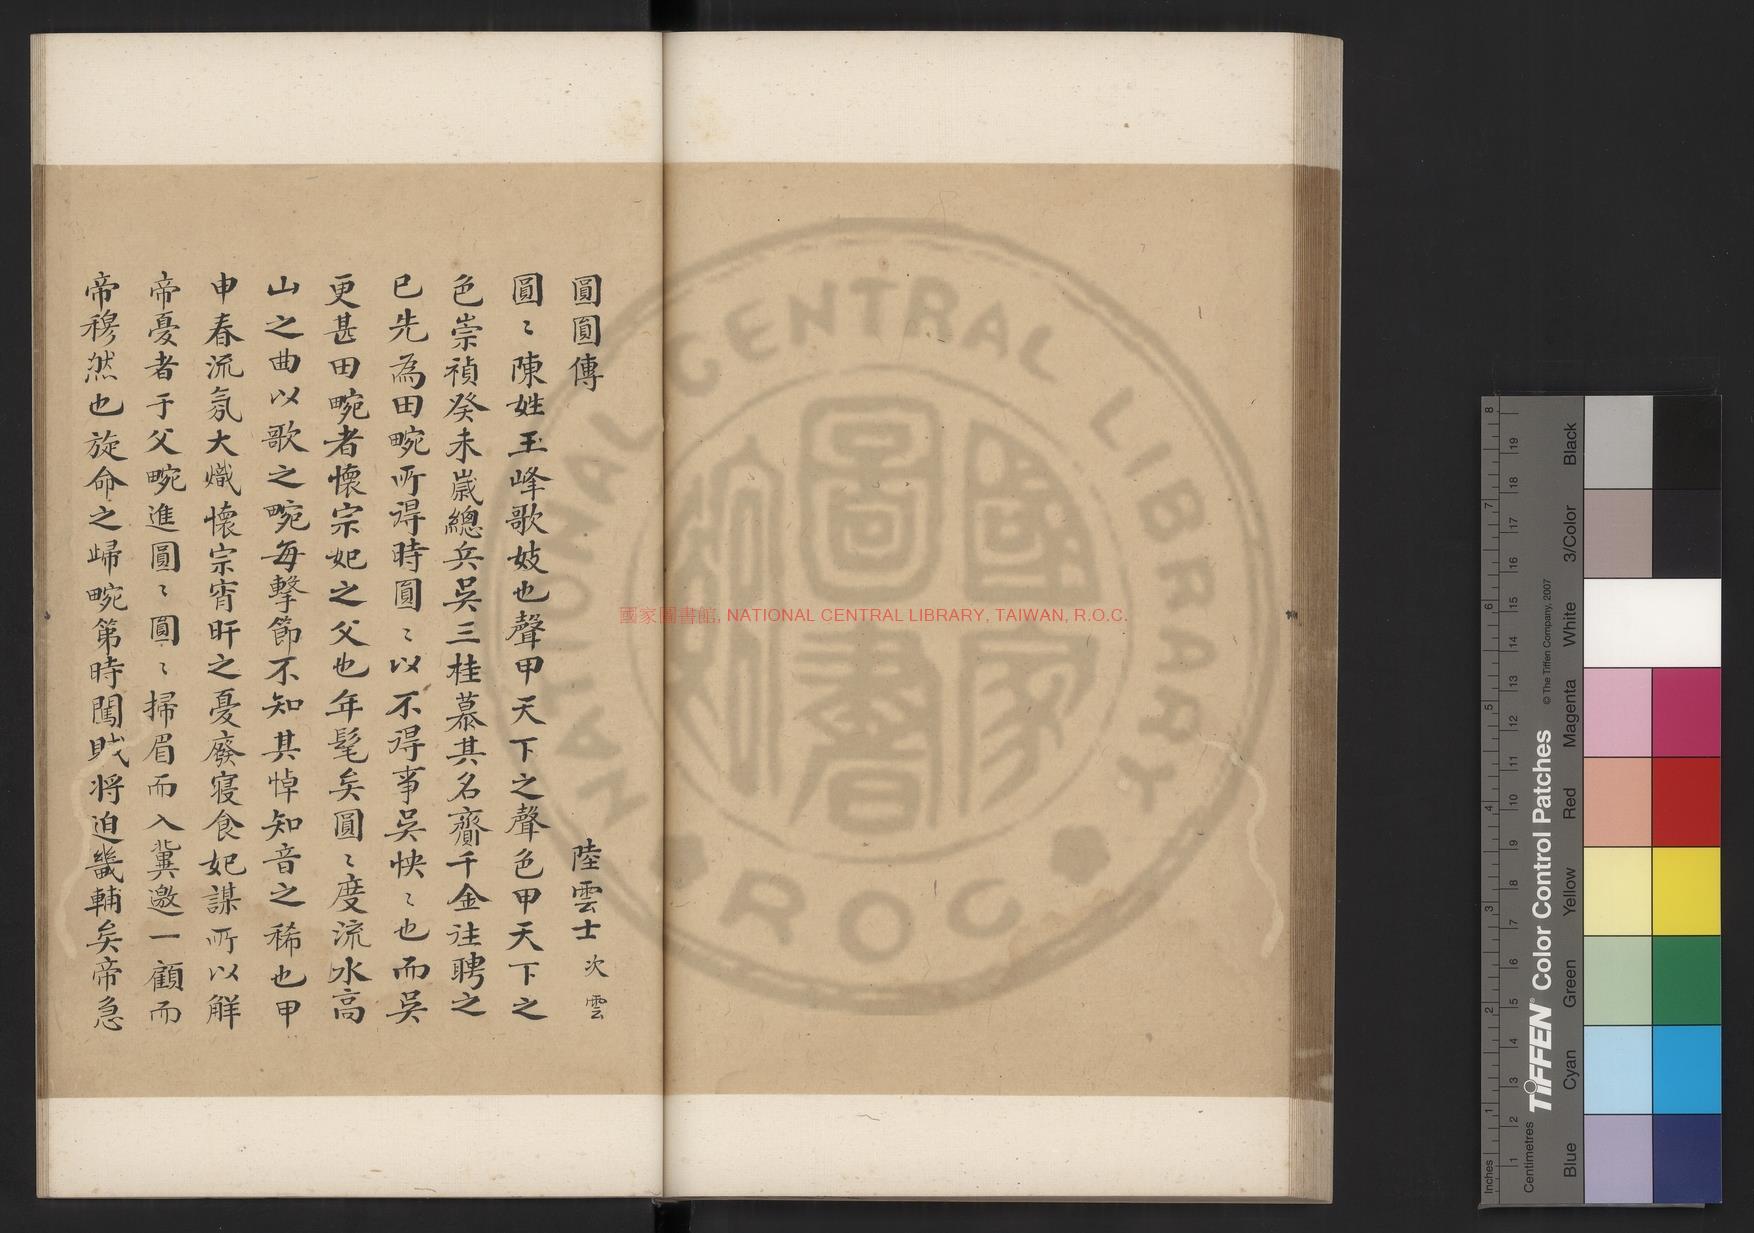 圓圓傳 陸雲士 次雲
圓〻陳姓玉峰歌妓也聲甲天下之聲色甲天下之
色崇禎癸未歲總兵吳三桂慕其名齎千金往聘之
已先為田畹所得時圓〻以不得事吳怏〻也而吳
更甚田畹者懷宗妃之父也年髦矣圓〻度流水高
山之曲以歌之畹每擊節不知其悼知音之稀也甲
申春流氛大熾懷宗宵旰之憂廢寢食妃謀所以解
帝憂者于父畹進圓〻圓〻掃眉而入冀邀一顧而
帝穆然也旋命之歸畹第時闖賊將迫畿輔矣帝急
國家圖書館, NATIONAL CENTRAL LIBRARY, TAIWAN, R.O.C.
NATIONAL CENTRAL LIBRARY
R O C
國家圖書館
Inches 1 2 3 4 5 6 7 8
Centimetres 1 2 3 4 5 6 7 8 9 10 11 12 13 14 15 16 17 18 19
TIFFEN® Color Control Patches
© The Tiffen Company, 2007
Blue Cyan Green Yellow Red Magenta White 3/Color Black